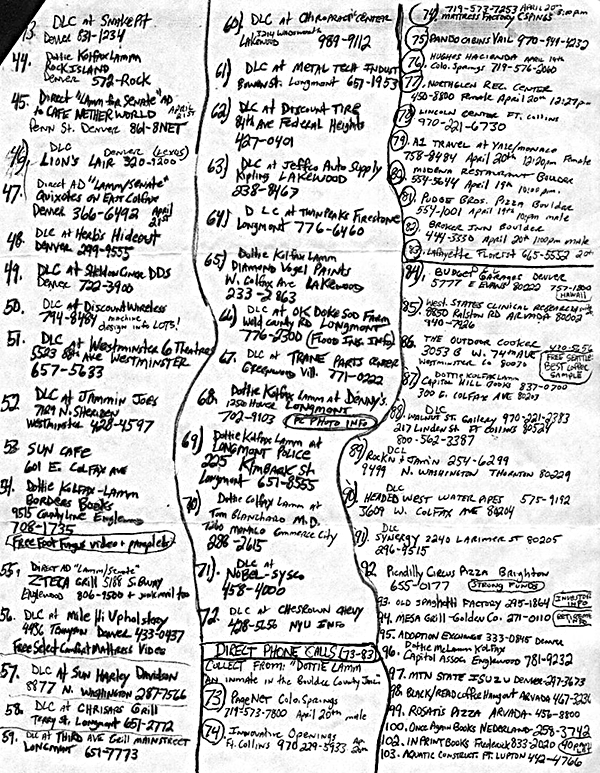 43. DLC at SnakePit
Denver 831-1234
44. Dottie Kolfax Lamm
ROCK ISLAND
Denver 572-Rock
45. Direct "Lamm for Senate" AD
to CAFE NETHERWORLD APRIL 21ST
Penn St. Denver 861-8NET
46. DLC Denver (LEXUS)
LION'S LAIR 320-9200
47. Direct AD "Lamm/Senate"
Quixotes on EAST Colfax
Denver 366-6492 April 21st
48. DLC at Herb's Hideout
DENVER 299-9555
49. DLC at Sheldon Giner DDS
Denver 722-3900
50. DLC at Discount Wireless
794-8484 machine design info LOTS!
51. DLC at Westminster 6 Theatres
5523 88th Ave WESTMINSTER
657-5633
52. DLC AT JAMMIN JOES
7189 N. Sheridan
Westminster 428-4597
53 SUN CAFE
601 E. COLFAX AVE
54. Dottie Kolfax-Lamm
Borders Books
9515 Countyline Englewood
708-1735
Free Foot Fungus video + pamphlet
55. DIRECT AD "Lamm/Senate"
ZTECA Grill 5188 S. Ulury
Englewood 806-9500
56. DLC at Mile Hi Upholstory
4436 Tennyson Denver 433-0437
Free Select Comfort Mattress Video
57. DLC AT Sun Harley Davidson
8877 N. Washington 287-7566
58. DLC at CHRISARS Grill
Terry St. Longmont 651-2772
59. DLC AT THIRD AVE Grill MAINSTREET
LONGMONT 651-7773
60. DLC at CHIROPRACTIC CENTER
1214 Wadsworth
LAKEWOOD 989-9112
61) DLC at METAL TECH INDUST
Bowen St. Longmont 651-1953
62. DLC at DISCOUNT TIRE
84th Ave Federal Heights
427-0401
63) DLC at Jeffco Auto Supply
Kipling LAKEWOOD
238-8467
64) DLC at TWIN PEAKS Firestone
Longmont 776-6460
65) Dottie Kolfax Lamm
DIAMOND Vogel PAINTS
W. Colfax Ave Lakewood
233-2863
66. DLC at OK DOKE SOD FARM
Weld County Rd LONGMONT
776-2300 (Flood Ins. Info)
67. DLC at TRANE PARTS CENTER
Greenwood Vill. 771-0222
68. Dottie Kolfax Lamm at DENNY'S.
1250 Hover LONGMONT
702-9103 FC PHOTO INFO
69) Dottie Kolfax Lamm at
LONGMONT POLICE
225 KIMBARK St
Longmont 651-8555
70) Dottie Colfax Lamm at
Tom BLANCHARD M.D.
7260 MONACO Commerce City
286-2615
71) DLC at
NOBEL-SYSCO
458-4000
72. DLC at CHESROWN CHEVY
428-5156 NYU INFO
DIRECT PHONE CALLS (73-83)
COLLECT FROM: "DOTTIE LAMM
AN inmate in the Boulder County Jail"
73) PageNet Colo. Springs
719-573-7800 April 20th male
74) Innovative Openings
Ft. Collins 970 229-5933
74. 719-573-7253 APRIL 20th
MATTRESS FACTORY CSPINGS
75) PANDO CABINS VAIL 970-949-4232
76. HUGHES HACIENDA April 19th
Colo. Springs 719-576-2060
77. NORTHGLEN REC. CENTER
450-8800 Female April 20th 12:27pm
78. LINCOLN CENTER FT. COLLINS
970-221-6730
79. A1 TRAVEL at YALE/MONACO
758-8484 April 20th 12:20pm Female
80. MIDEWA RESTAURANT BOULDER
554-5644 April 19th 10:00pm.
81. PUDGE BROS. PIZZA Boulder
554-1001 April 19th 10pm male
82. BROKER INN Boulder
444-3330 April 20th 1:00pm male
83. Lafayette Florist 665-5552 20th
84. BUDGET Garages DENVER
5777 E EVANS 80222 757-1800
HAWAII
85. West. STATES CLINICAL RESEARCH
8850 Ralston Rd ARVADA 80002
940-7926
86. THE OUTDOOR COOKER 430-5156
3053 B W. 74TH AVE
Westminster Co 80030
FREE SEATTLE'S
BEST COFFEE
SAMPLE
87) DOTTIE KOLFAX LAMM
Capitol Hill Books 837-0700
300 E. COLFAX AVE 80203
88. DLC
WALNUT ST. Gallery 970-221-2383
217 Linden St FT Collins 80524
800-562-3387
89. DCL
ROCK N JAM'IN 254-6299
9499 N. WASHINGTON THORNTON 80229
90. DLC
HEADED WEST WATER PIPES 575-9192
3609 W. COLFAX AVE 80204
91. DLC
SYNERGY 2240 LARIMER ST 80205
296-9515
92 Picadilly Circus Pizza Brighton
655-0177 STRONG FUNDS
93. OLD SPAGHETTI FACTORY 295-1864 INVESTOR INFO
94. MESA GRILL-Golden Co. 271-0110
95. ADOPTION EXCHANGE 333-0845 Denver
96. Dottie McLamm KolFax
Capitol Assoc. Englewood 781-9232
97. MTN STATE ISUZU DENVER-297-3673
98. Black/READ Coffee Hangout ARVADA 467-3236
99. ROSATI'S PIZZA ARVADA-456-8800
100. Once Again Books NEDERLAND-258-3742
102. IN PRINT BOOKS Frederick 833-2020
103. AQUATIC CONSTRUCT FT. LUPTON 492-4766